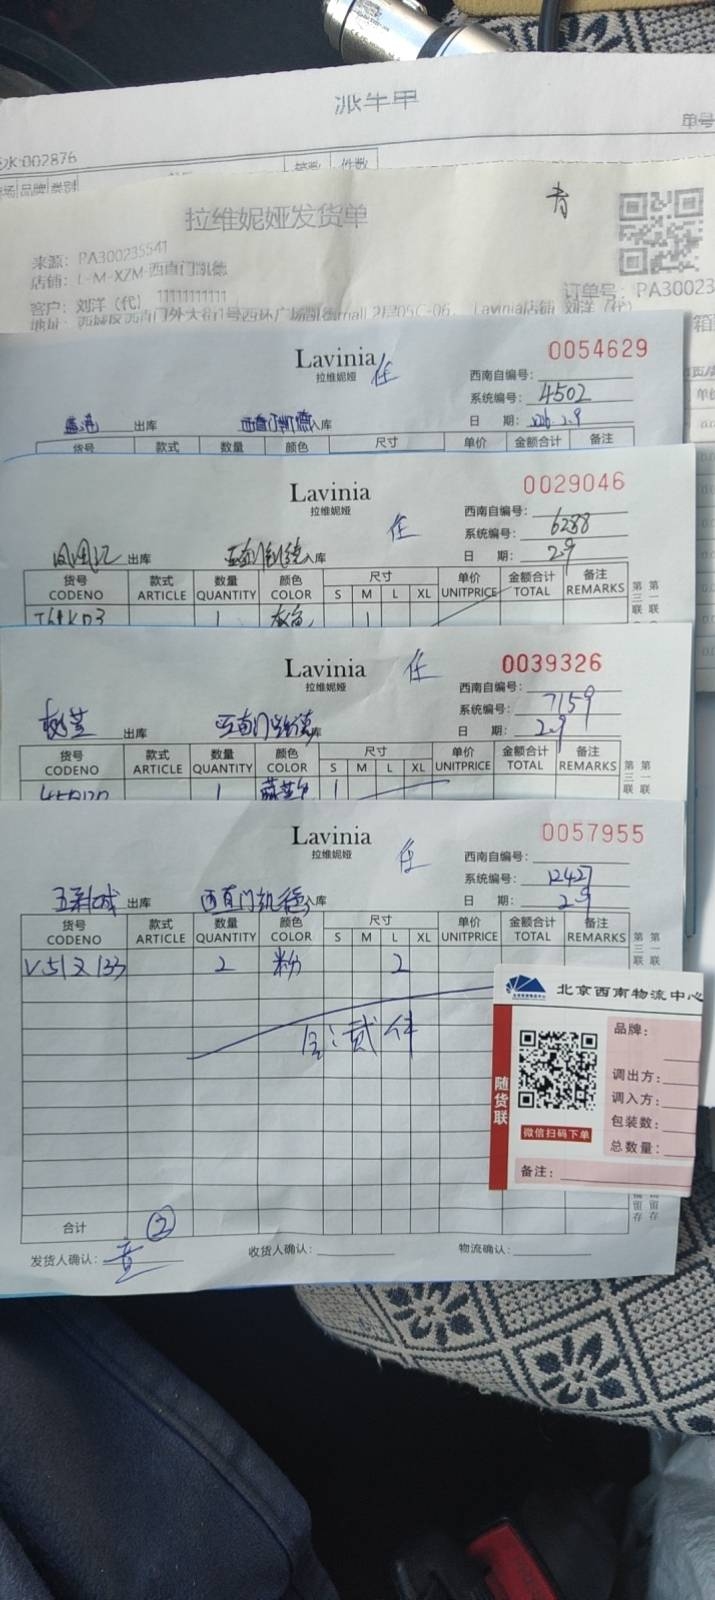 派车甲
单号
水:002876
品牌 类别
箱数 件数
拉维妮娅发货单
来源: PA300235541
店铺: L-M-XZM-西直门凯德
订单号: PA30023
客户: 刘洋（代） 11111111111
地址: 西城区西直门外大街1号西环广场凯德mall 2层05C-06, Lavinia店铺 刘洋（代）
Lavinia
拉维妮娅
任
0054629
西南自编号:
系统编号: 4502
出库 西直门凯德入库
日 期: 2.9
货号 款式 数量 颜色 尺寸 单价 金额合计 备注
Lavinia
拉维妮娅
任
0029046
西南自编号:
系统编号: 6288
出库 西直门凯德入库
日 期: 2.9
货号 款式 数量 颜色 尺寸 单价 金额合计 备注
CODENO ARTICLE QUANTITY COLOR S M L XL UNITPRICE TOTAL REMARKS
第三联 第一联
1 灰色 1
Lavinia
拉维妮娅
任
0039326
西南自编号:
系统编号: 7159
出库 西直门凯德入库
日 期: 2.9
货号 款式 数量 颜色 尺寸 单价 金额合计 备注
CODENO ARTICLE QUANTITY COLOR S M L XL UNITPRICE TOTAL REMARKS
第三联 第一联
1 1
Lavinia
拉维妮娅
任
0057955
西南自编号:
系统编号: 12427
五彩城 出库 西直门凯德入库
日 期: 2.9
货号 款式 数量 颜色 尺寸 单价 金额合计 备注
CODENO ARTICLE QUANTITY COLOR S M L XL UNITPRICE TOTAL REMARKS
第三联 第一联
V51Z133 2 粉 2
合:贰件
北京西南物流中心
品牌:
调出方:
调入方:
包装数:
总数量:
随货联
微信扫码下单
备注:
合计 2
发货人确认: 收货人确认: 物流确认: